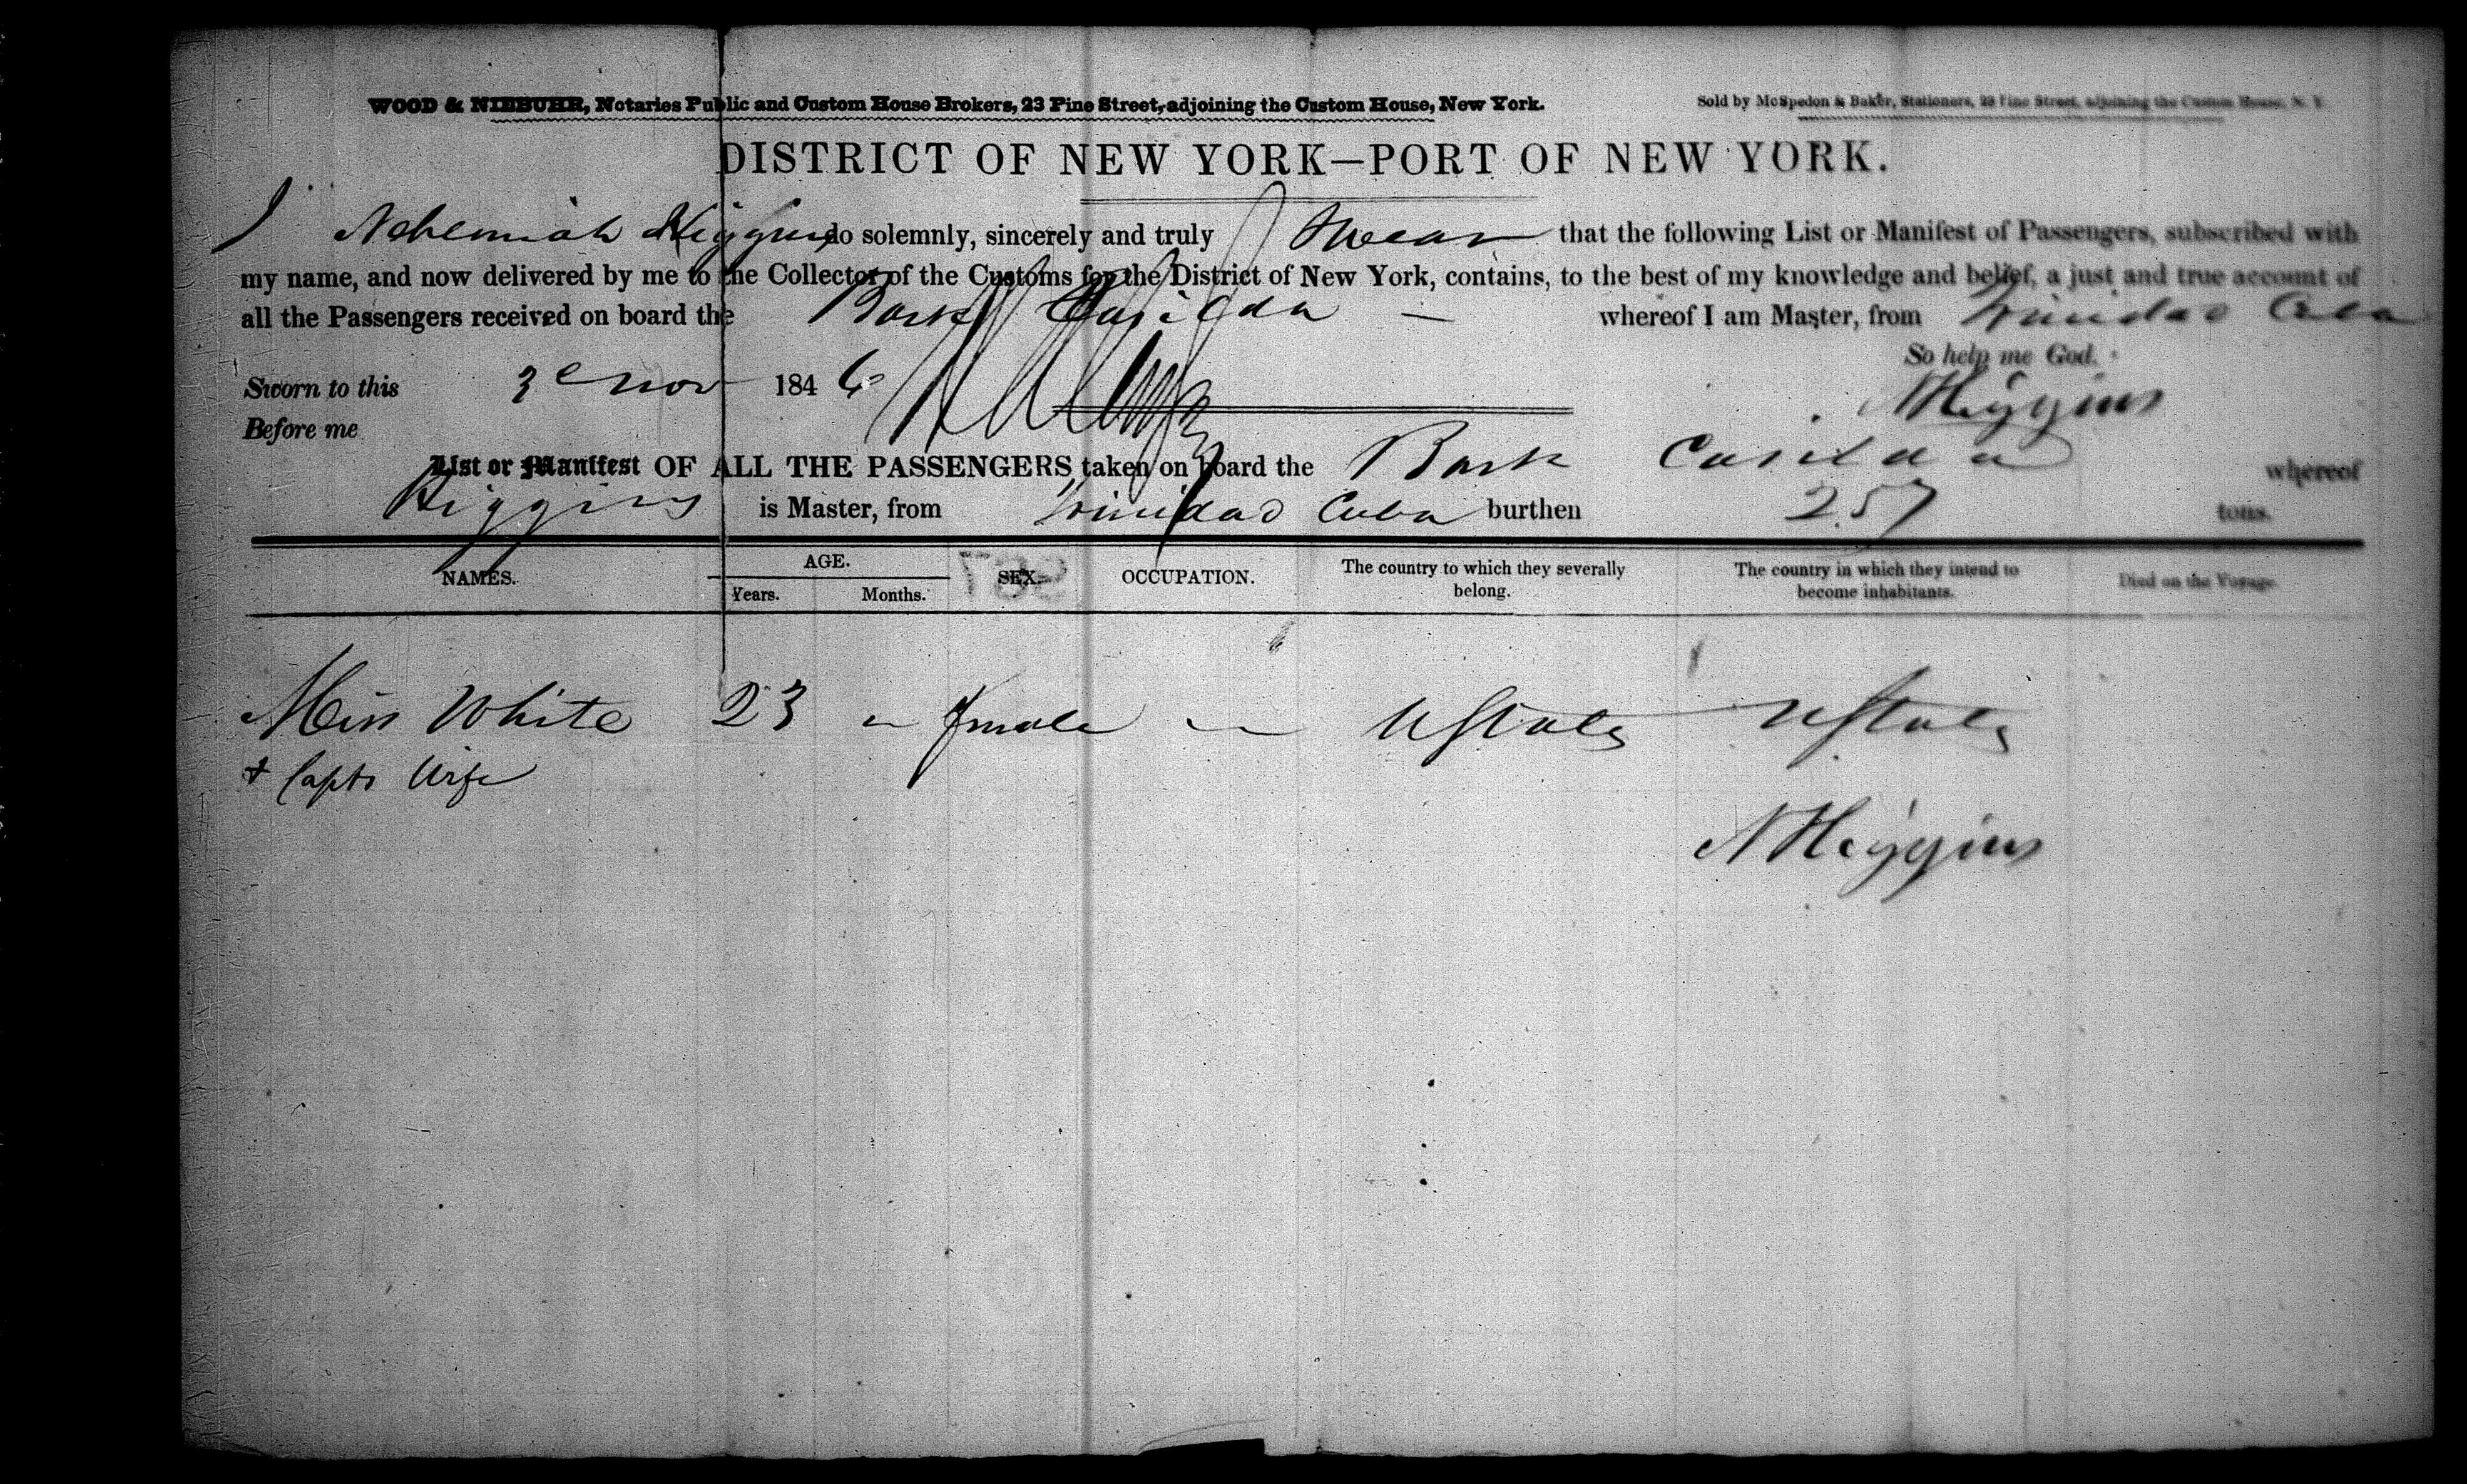 WOOD & NIEBUHR, Notaries Public and Custom House Brokers, 23 Pine Street, adjoining the Custom House, New York.
Sold by McSpedon & Baker, Stationers, 23 Pine Street, adjoining the Custom House, N. Y.
DISTRICT OF NEW YORK—PORT OF NEW YORK.
I Nehemiah Higgins do solemnly, sincerely and truly Swear that the following List or Manifest of Passengers, subscribed with
my name, and now delivered by me to the Collector of the Customs for the District of New York, contains, to the best of my knowledge and belief, a just and true account of
all the Passengers received on board the Bark Casilda — whereof I am Master, from Trinidad Cuba
So help me God.
Sworn to this 3e Nov 1846 NHiggins
Before me
List or Manifest OF ALL THE PASSENGERS taken on board the Bark Casilda whereof
Higgins is Master, from Trinidad Cuba burthen 257 tons.
NAMES. AGE. Years. Months. SEX. OCCUPATION. The country to which they severally belong. The country in which they intend to become inhabitants. Died on the Voyage.
Miss White 23 — female — UStates UStates
+ Capts Wife
NHiggins